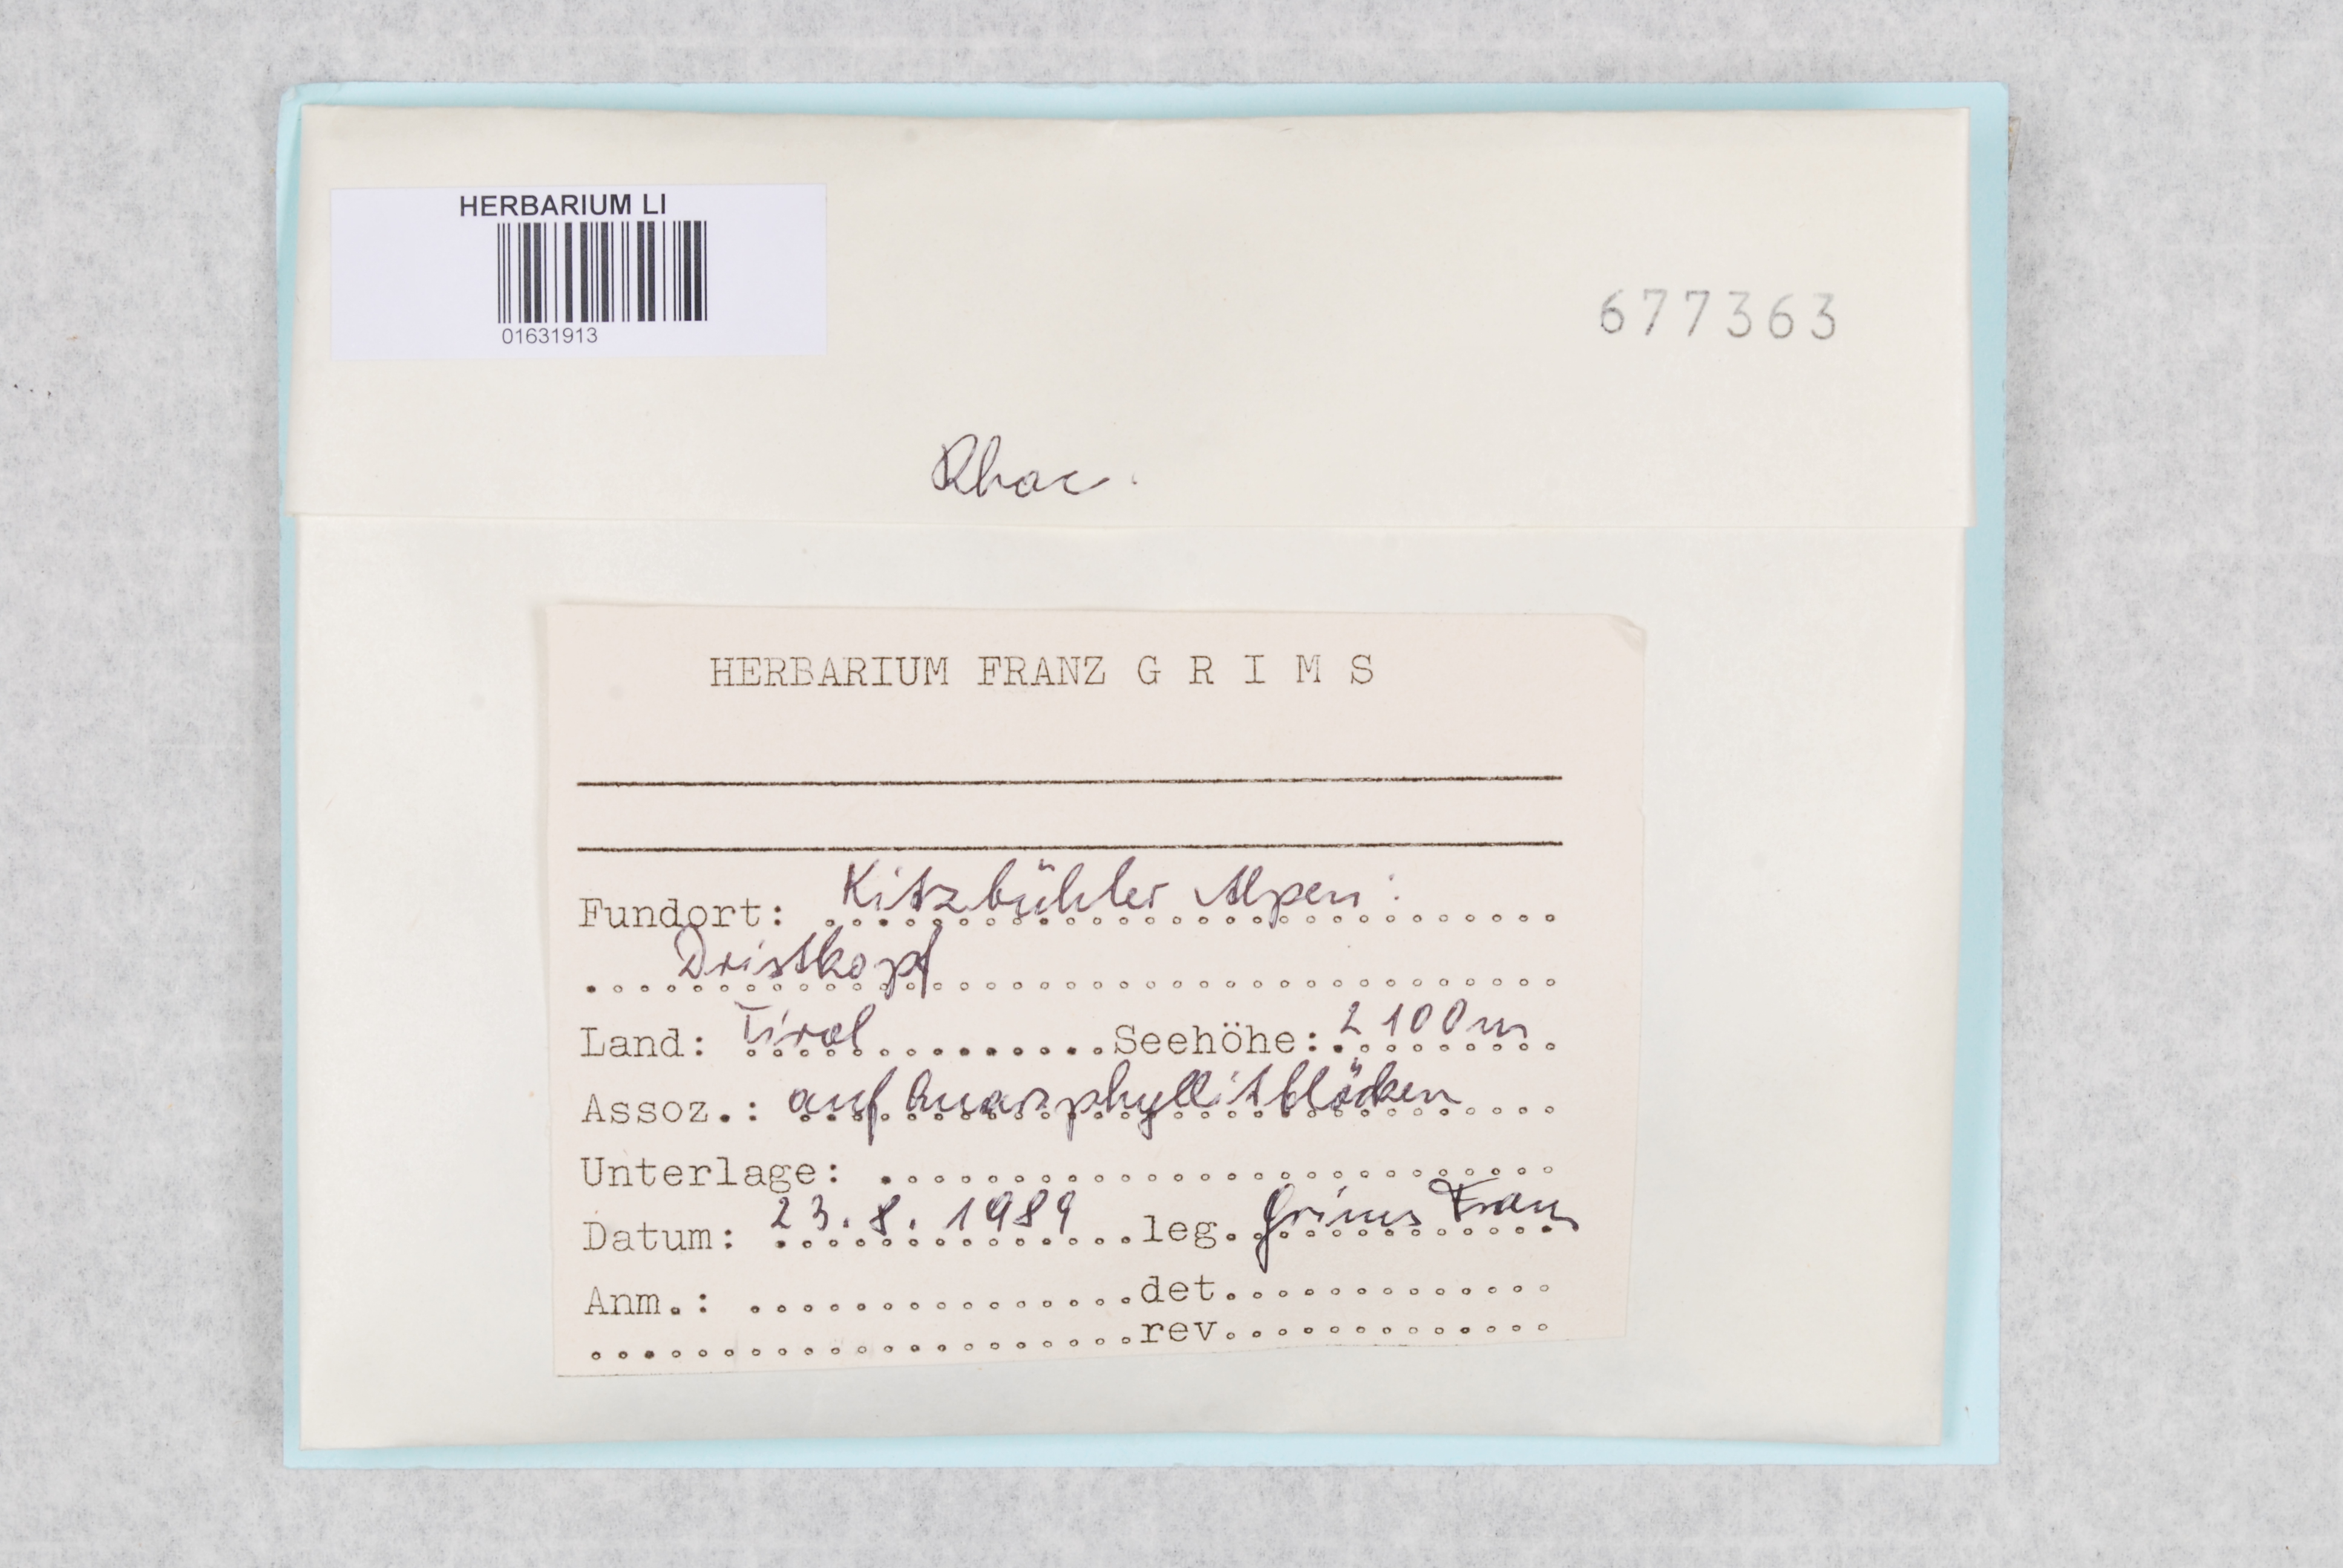 HERBARIUM LI
01631913
677363
Rhac.
HERBARIUM FRANZ G R I M S
Fundort: Kitzbühler Alpen:
Dristkopf
Land: Tirol Seehöhe: 2100m
Assoz.: auf Quarzphyllitblöcken
Unterlage:
Datum: 23.8.1989 leg. Grims Franz
Anm.: det.
rev.